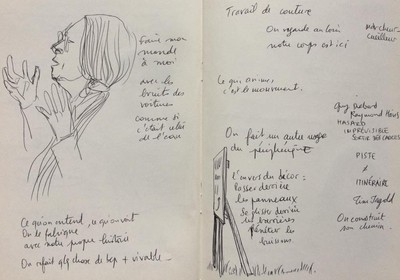 faire mon
monde
à moi
avec les
bruits des
voitures
comme si
c'était celui
de l'eau
Ce qu'on entend, ce qu'on voit
On le fabrique
avec notre propre histoire
On refait qlq chose de bcp + vivable.
Travail de couture
On regarde au loin
notre corps est ici
Marcheur
cueilleur
Ce qui anime,
c'est le mouvement.
Guy Debord
Raymond
HASARD
IMPRÉVISIBLE
SORTIE DES CADRES
On fait un autre usage
du périphérique
PISTE
≠
ITINÉRAIRE
L'envers du décor :
Passer derrière
les panneaux
Se glisser derrière
les barrières
Pénétrer les
buissons
Tim Ingold
On construit
son chemin.